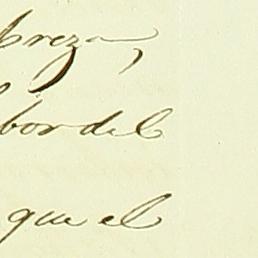 breza,
bor del
que el